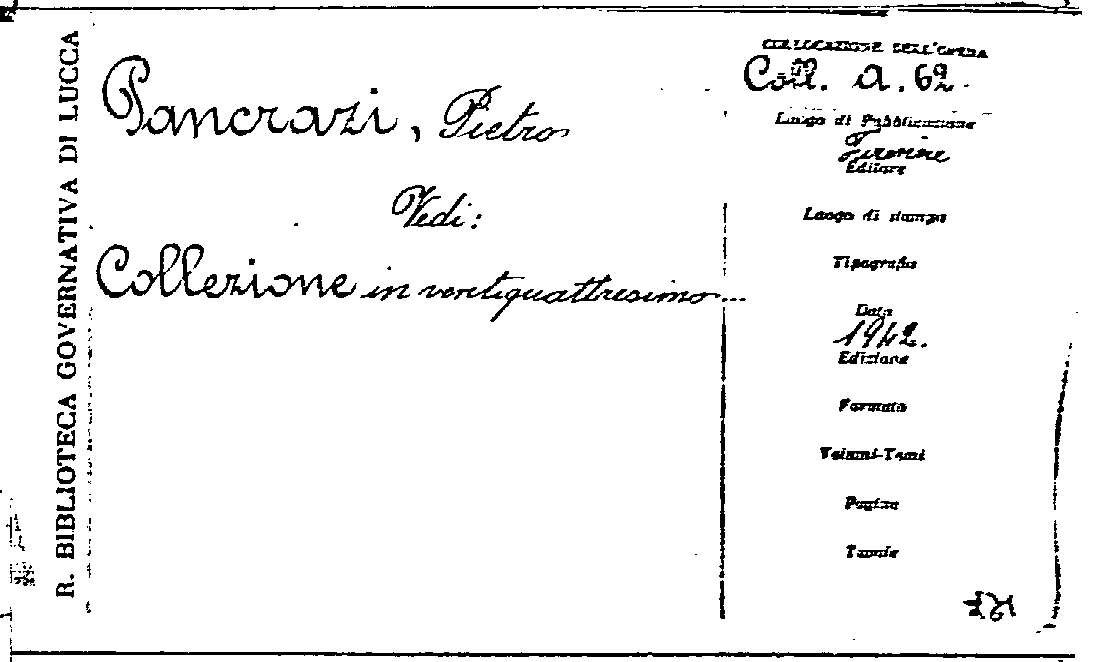 R. BIBLIOTECA GOVERNATIVA DI LUCCA
Pancrazi, Pietro
Vedi:
Collezione in ventiquattresimo...
COLLOCAZIONE DELL'OPERA
Coll. A. 62.
Luogo di Pubblicazione
Firenze
Editore
Luogo di stampa
Tipografia
Data
1942.
Edizione
Formato
Volumi-Tomi
Pagine
Tavole